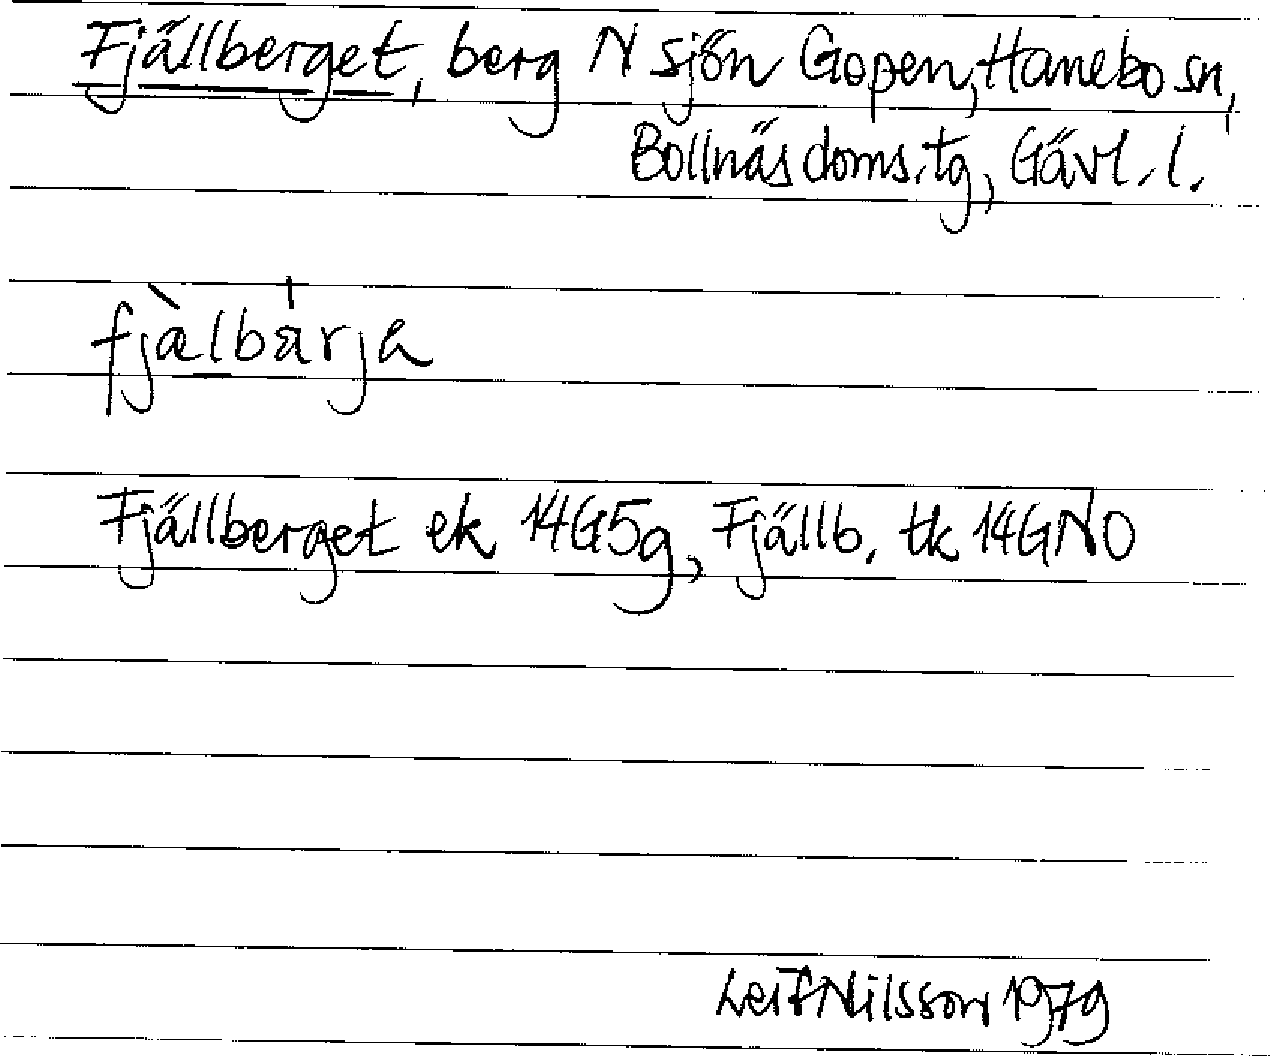 Fjällberget, berg N sjön Gopen, Hanebo sn,
Bollnäs doms.tg, Gävl. l.
fjæ̀lbárja
Fjällberget ek 14G5g, Fjällb. tk 14GNO
Leif Nilsson 1979